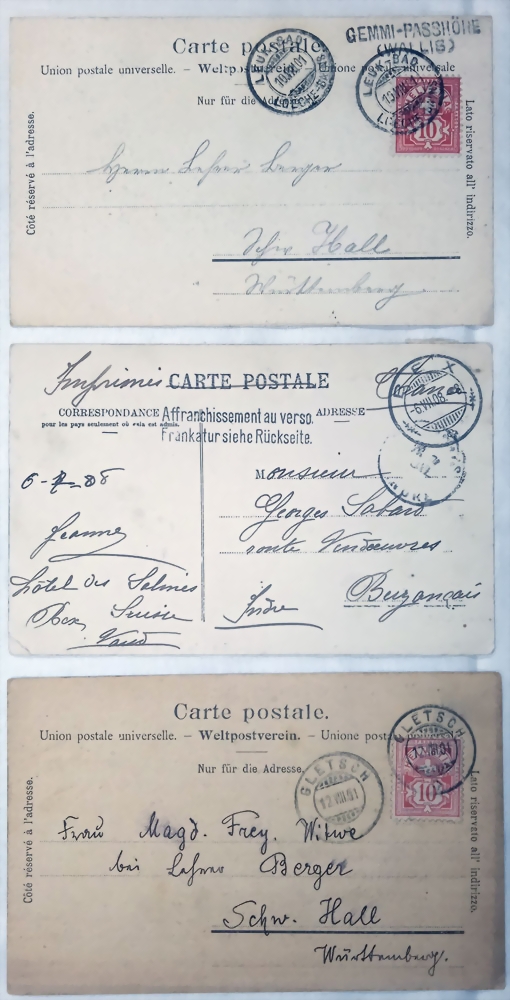 GEMMI-PASSHÖHE
(WALLIS)
Carte postale.
LEUK-BAD
LOÈCHE-
LEUK-BAD
Union postale universelle. – Weltpostverein. – Unione postale universale
Nur für die Adresse
10
Côté réservé à l'adresse.
Lato riservato all' indirizzo.
Herrn Lehrer Berger
Schw. Hall
Württemberg.
Imprimés CARTE POSTALE
BEX
-6.VII.08
CORRESPONDANCE
ADRESSE
pour les pays seulement où cela est admis.
Affranchissement au verso.
Frankatur siehe Rückseite.
6-7-08
Monsieur
Georges
Jeanne
route Vendoeuvres
hôtel des Salines
Buzançais
Bex, Suisse
Indre
Vaud
INDRE
Carte postale.
Union postale universelle. – Weltpostverein. – Unione
GLETSCH
12.VIII.01
Nur für die Adresse.
GLETSCH
12.VIII.01
10
Côté réservé à l'adresse.
Lato riservato all' indirizzo.
Frau Magd. Frey. Witwe
bei Lehrer Berger
Schw. Hall
Württemberg.